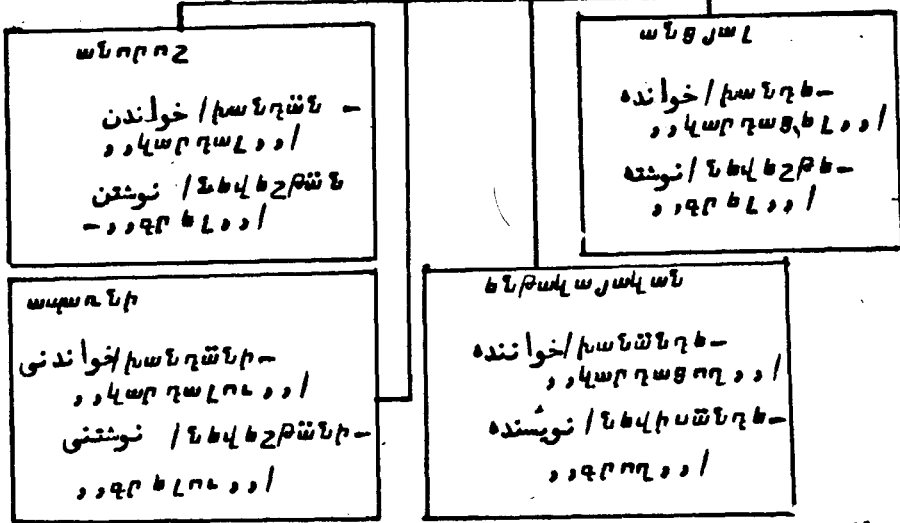 անորոշ
– خواندن /խանդäն
/,,կարդալ,,
نوشتن /նեվեշթäն
/,,գրել,, –
անցյալ
خوانده /խանդե–
/,,կարդացել,,
نوشته /նեվեշթե–
/,,գրել,,
ապառնի
خواندنی /խանդäնի–
/,,կարդալու,,
نوشتنی /նեվեշթäնի–
/,,գրելու,,
ենթակայական
خواننده /խանäնդե–
/,,կարդացող,,
نویسنده /նեվիսäնդե–
/,,գրող,,